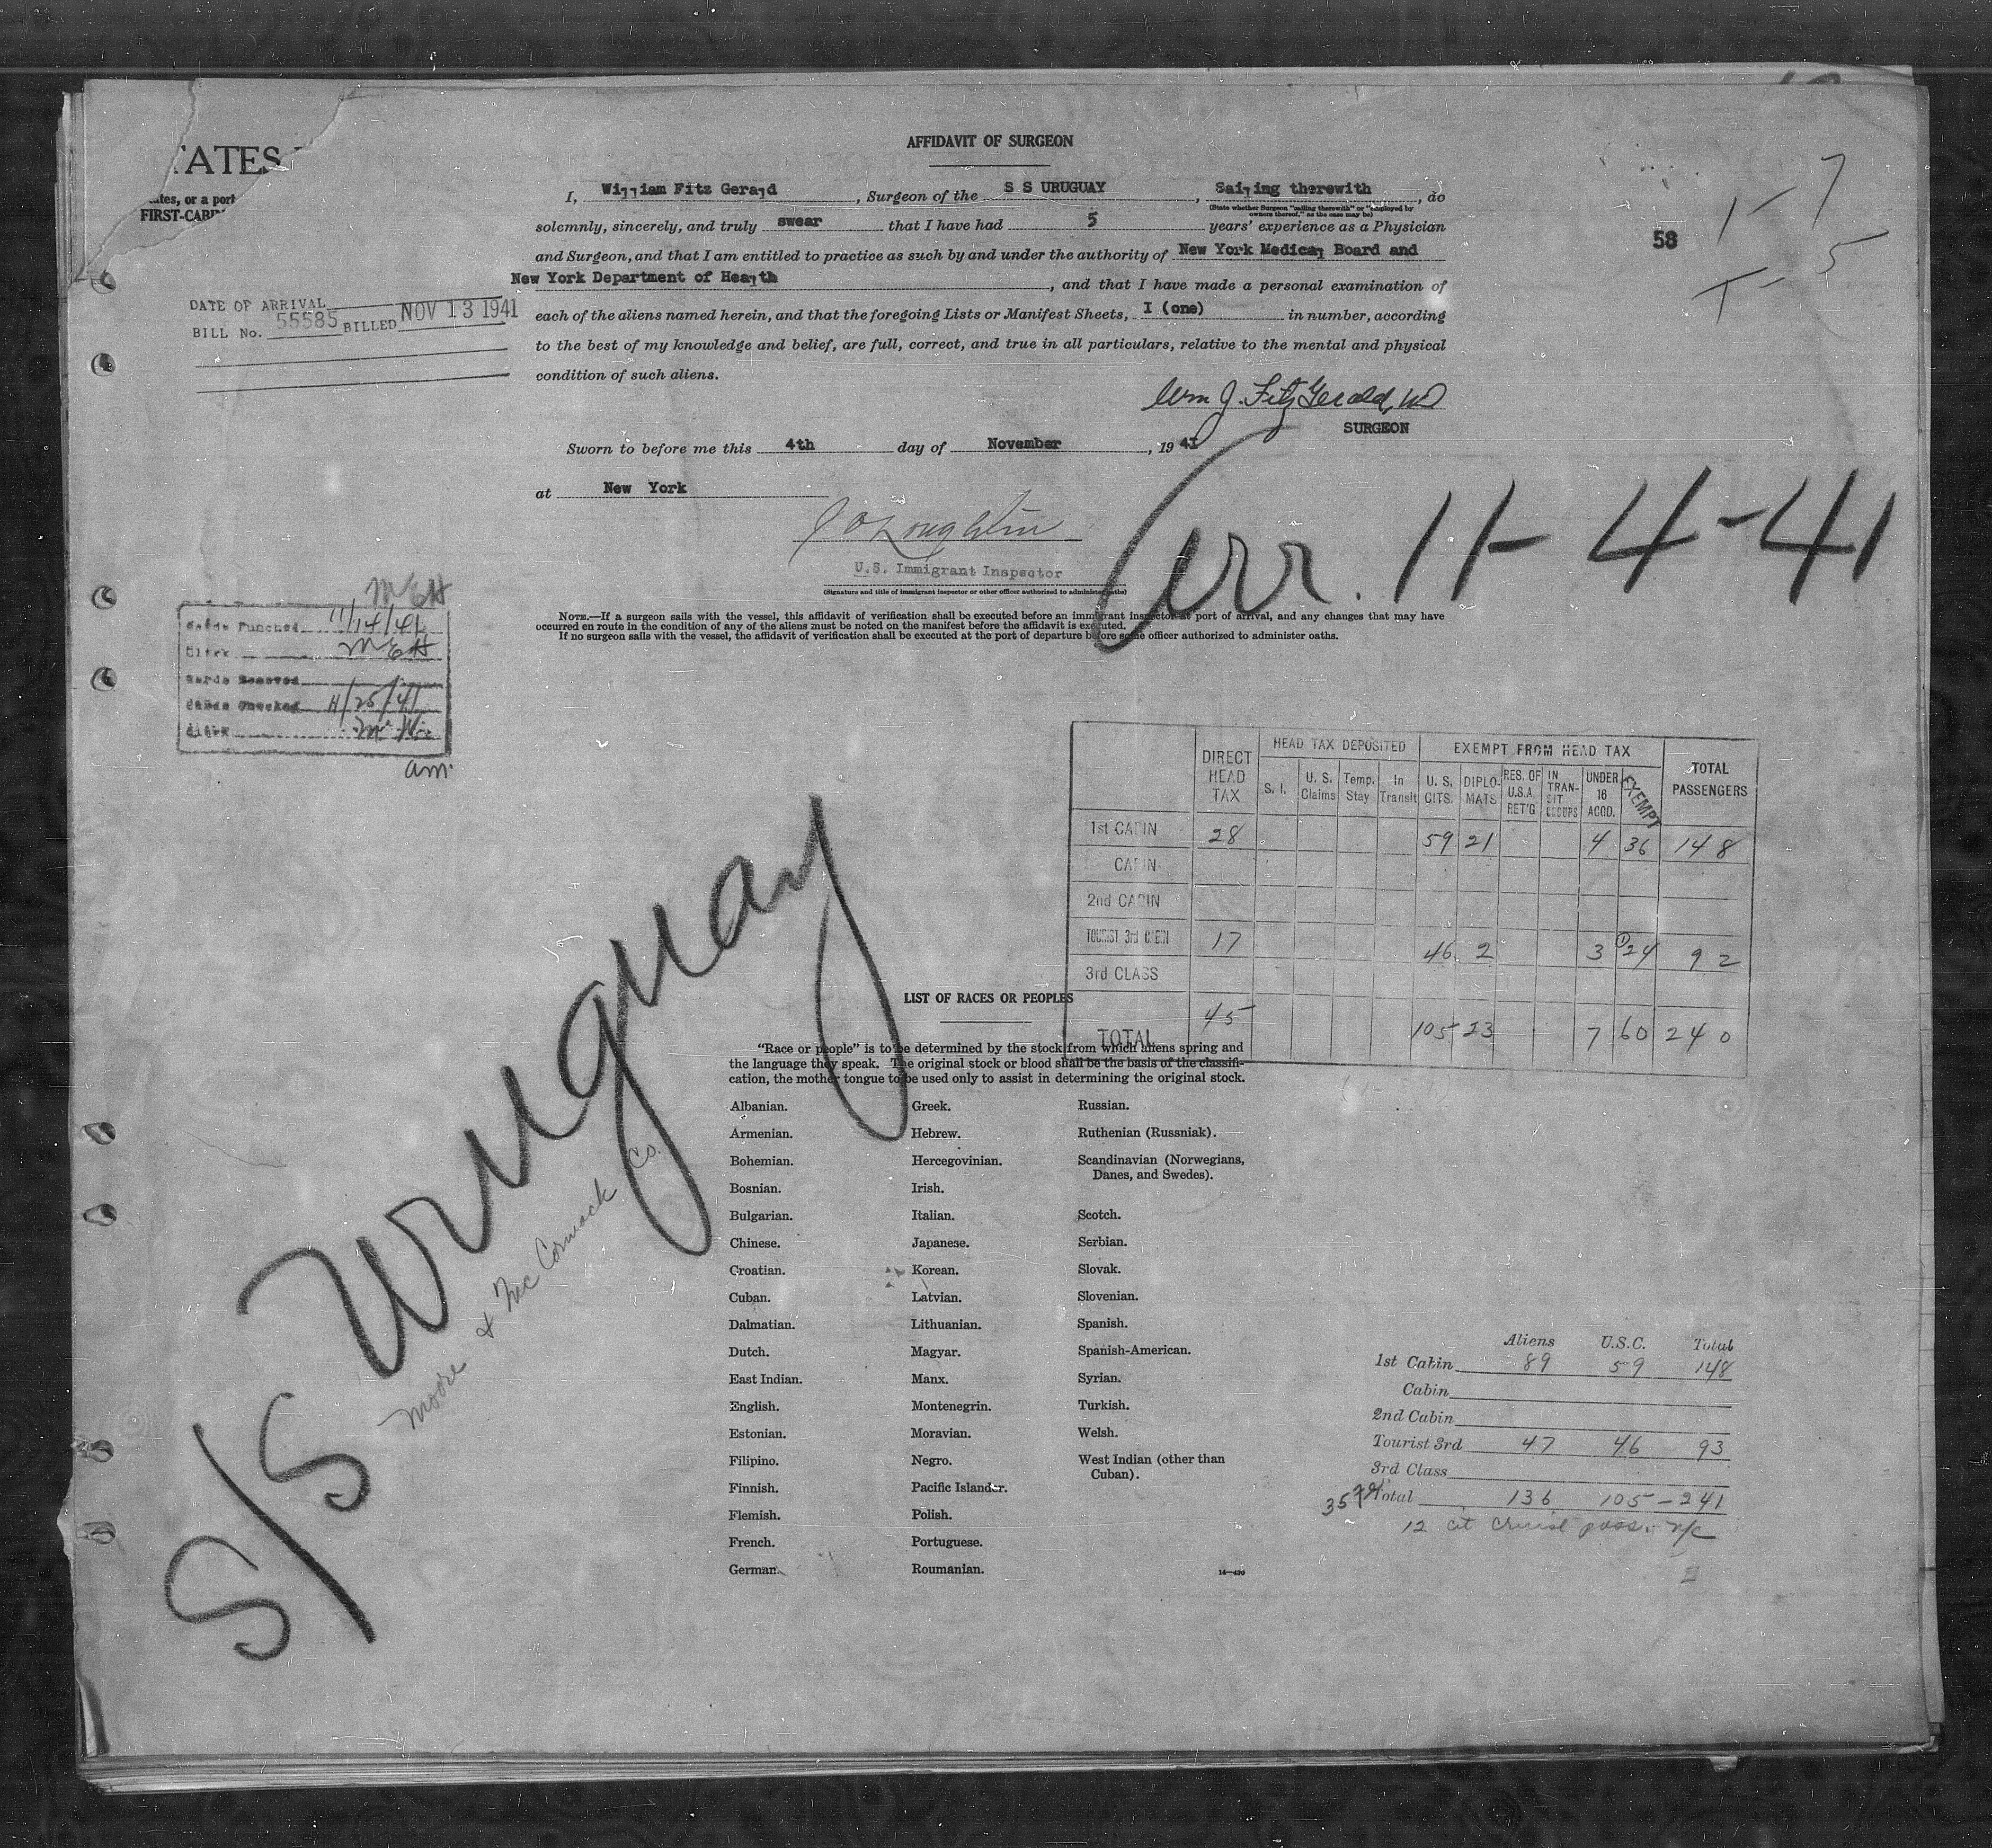 TATES
ates, or a port
FIRST-CABIN
AFFIDAVIT OF SURGEON
I, William Fitz Gerald, Surgeon of the S S URUGUAY, Sailing therewith, do
(State whether Surgeon "sailing therewith" or "employed by
owners thereof," as the case may be)
solemnly, sincerely, and truly swear that I have had 5 years' experience as a Physician
and Surgeon, and that I am entitled to practice as such by and under the authority of New York Medical Board and
New York Department of Health, and that I have made a personal examination of
each of the aliens named herein, and that the foregoing Lists or Manifest Sheets, I (one) in number, according
to the best of my knowledge and belief, are full, correct, and true in all particulars, relative to the mental and physical
condition of such aliens.
Wm J. FitzGerald, MD
SURGEON
Sworn to before me this 4th day of November, 19 41
at New York
U.S. Immigrant Inspector
(Signature and title of immigrant inspector or other officer authorized to administer oaths)
NOTE.—If a surgeon sails with the vessel, this affidavit of verification shall be executed before an immigrant inspector at port of arrival, and any changes that may have
occurred en route in the condition of any of the aliens must be noted on the manifest before the affidavit is executed.
If no surgeon sails with the vessel, the affidavit of verification shall be executed at the port of departure before some officer authorized to administer oaths.
1-7
58
T-5
DATE OF ARRIVAL
BILL No. 55585 BILLED NOV 13 1941
Arr. 11-4-41
MEH
Cards Punched 11/14/41
Clerk MEH
Cards Removed
Cards Checked 11/25/41
Clerk
am.
DIRECT HEAD TAX HEAD TAX DEPOSITED EXEMPT FROM HEAD TAX TOTAL PASSENGERS
S. I. U. S. Claims Temp. Stay In Transit U. S. CITS. DIPLO-MATS RES. OF U.S.A. RET'G IN TRAN-SIT GROUPS UNDER 16 ACCD. EXEMPT
1st CABIN 28 59 21 4 36 148
CABIN
2nd CABIN
TOURIST 3rd CABIN 17 46 2 3 ① 24 92
3rd CLASS
TOTAL 45 105 23 7 60 240
S/S Uruguay
Moore & McCormack Co.
LIST OF RACES OR PEOPLES
"Race or people" is to be determined by the stock from which aliens spring and
the language they speak. The original stock or blood shall be the basis of the classifi-
cation, the mother tongue to be used only to assist in determining the original stock.
Albanian.
Armenian.
Bohemian.
Bosnian.
Bulgarian.
Chinese.
Croatian.
Cuban.
Dalmatian.
Dutch.
East Indian.
English.
Estonian.
Filipino.
Finnish.
Flemish.
French.
German.
Greek.
Hebrew.
Hercegovinian.
Irish.
Italian.
Japanese.
Korean.
Latvian.
Lithuanian.
Magyar.
Manx.
Montenegrin.
Moravian.
Negro.
Pacific Islander.
Polish.
Portuguese.
Roumanian.
Russian.
Ruthenian (Russniak).
Scandinavian (Norwegians,
Danes, and Swedes).
Scotch.
Serbian.
Slovak.
Slovenian.
Spanish.
Spanish-American.
Syrian.
Turkish.
Welsh.
West Indian (other than
Cuban).
Aliens U.S.C. Total
1st Cabin 89 59 148
Cabin
2nd Cabin
Tourist 3rd 47 46 93
3rd Class
Total 136 105 - 241
12 cit cruise pass.